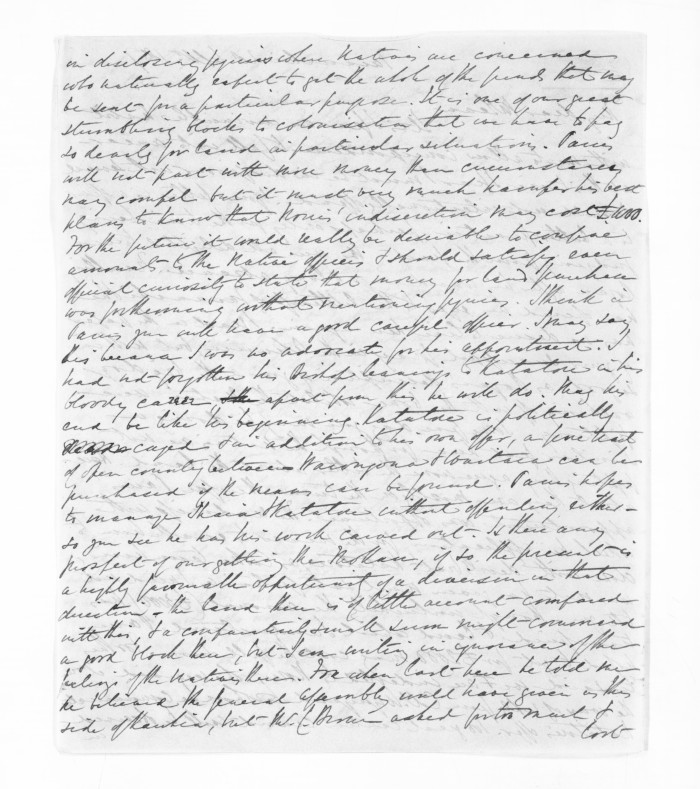 in disclosing figures where Natives are concerned
who naturally expect to get the whole of the funds that may
be sent for a particular purpose. It is one of our great
stumbling blocks to colonisation that we have to pay
so dearly for land in particular situations. Parris
will not part with more money than circumstances
may compel but it must very much hamper his best
plans to know that indiscretion may cost £1000.
For the future it would really be desirable to confine
amounts to the Native officers & should satisfy even
official curiosity to state that money for land purchase
was forthcoming without mentioning figures. I think in
Parris you will have a good careful officer. I may say
this because I was no advocate for his appointment. I
had not forgotten his Bishop leanings & Katatore in his
bloody career apart from this he will do. May his
end be like his beginning. Katatore is politically
caged & in addition to his own offer, a fine tract
of open country between Waiongona & Waitara can be
purchased if the means can be found. Parris hopes
to manage Ihaia & Katatore without offending either -
so you see he has his work carved out. Is there any
prospect of our getting the Mokau, if so the present is
a highly favourable opportunity of a diversion in that
direction - the land there is of little account compared
with this, & a comparatively small sum might command
a good block there, but I am writing in ignorance of the
feeling of the Natives there. Fox when last here he told me
he believed the General Assembly would have given us this
side of Kawhia, but W. C Brown asked for too much &
lost